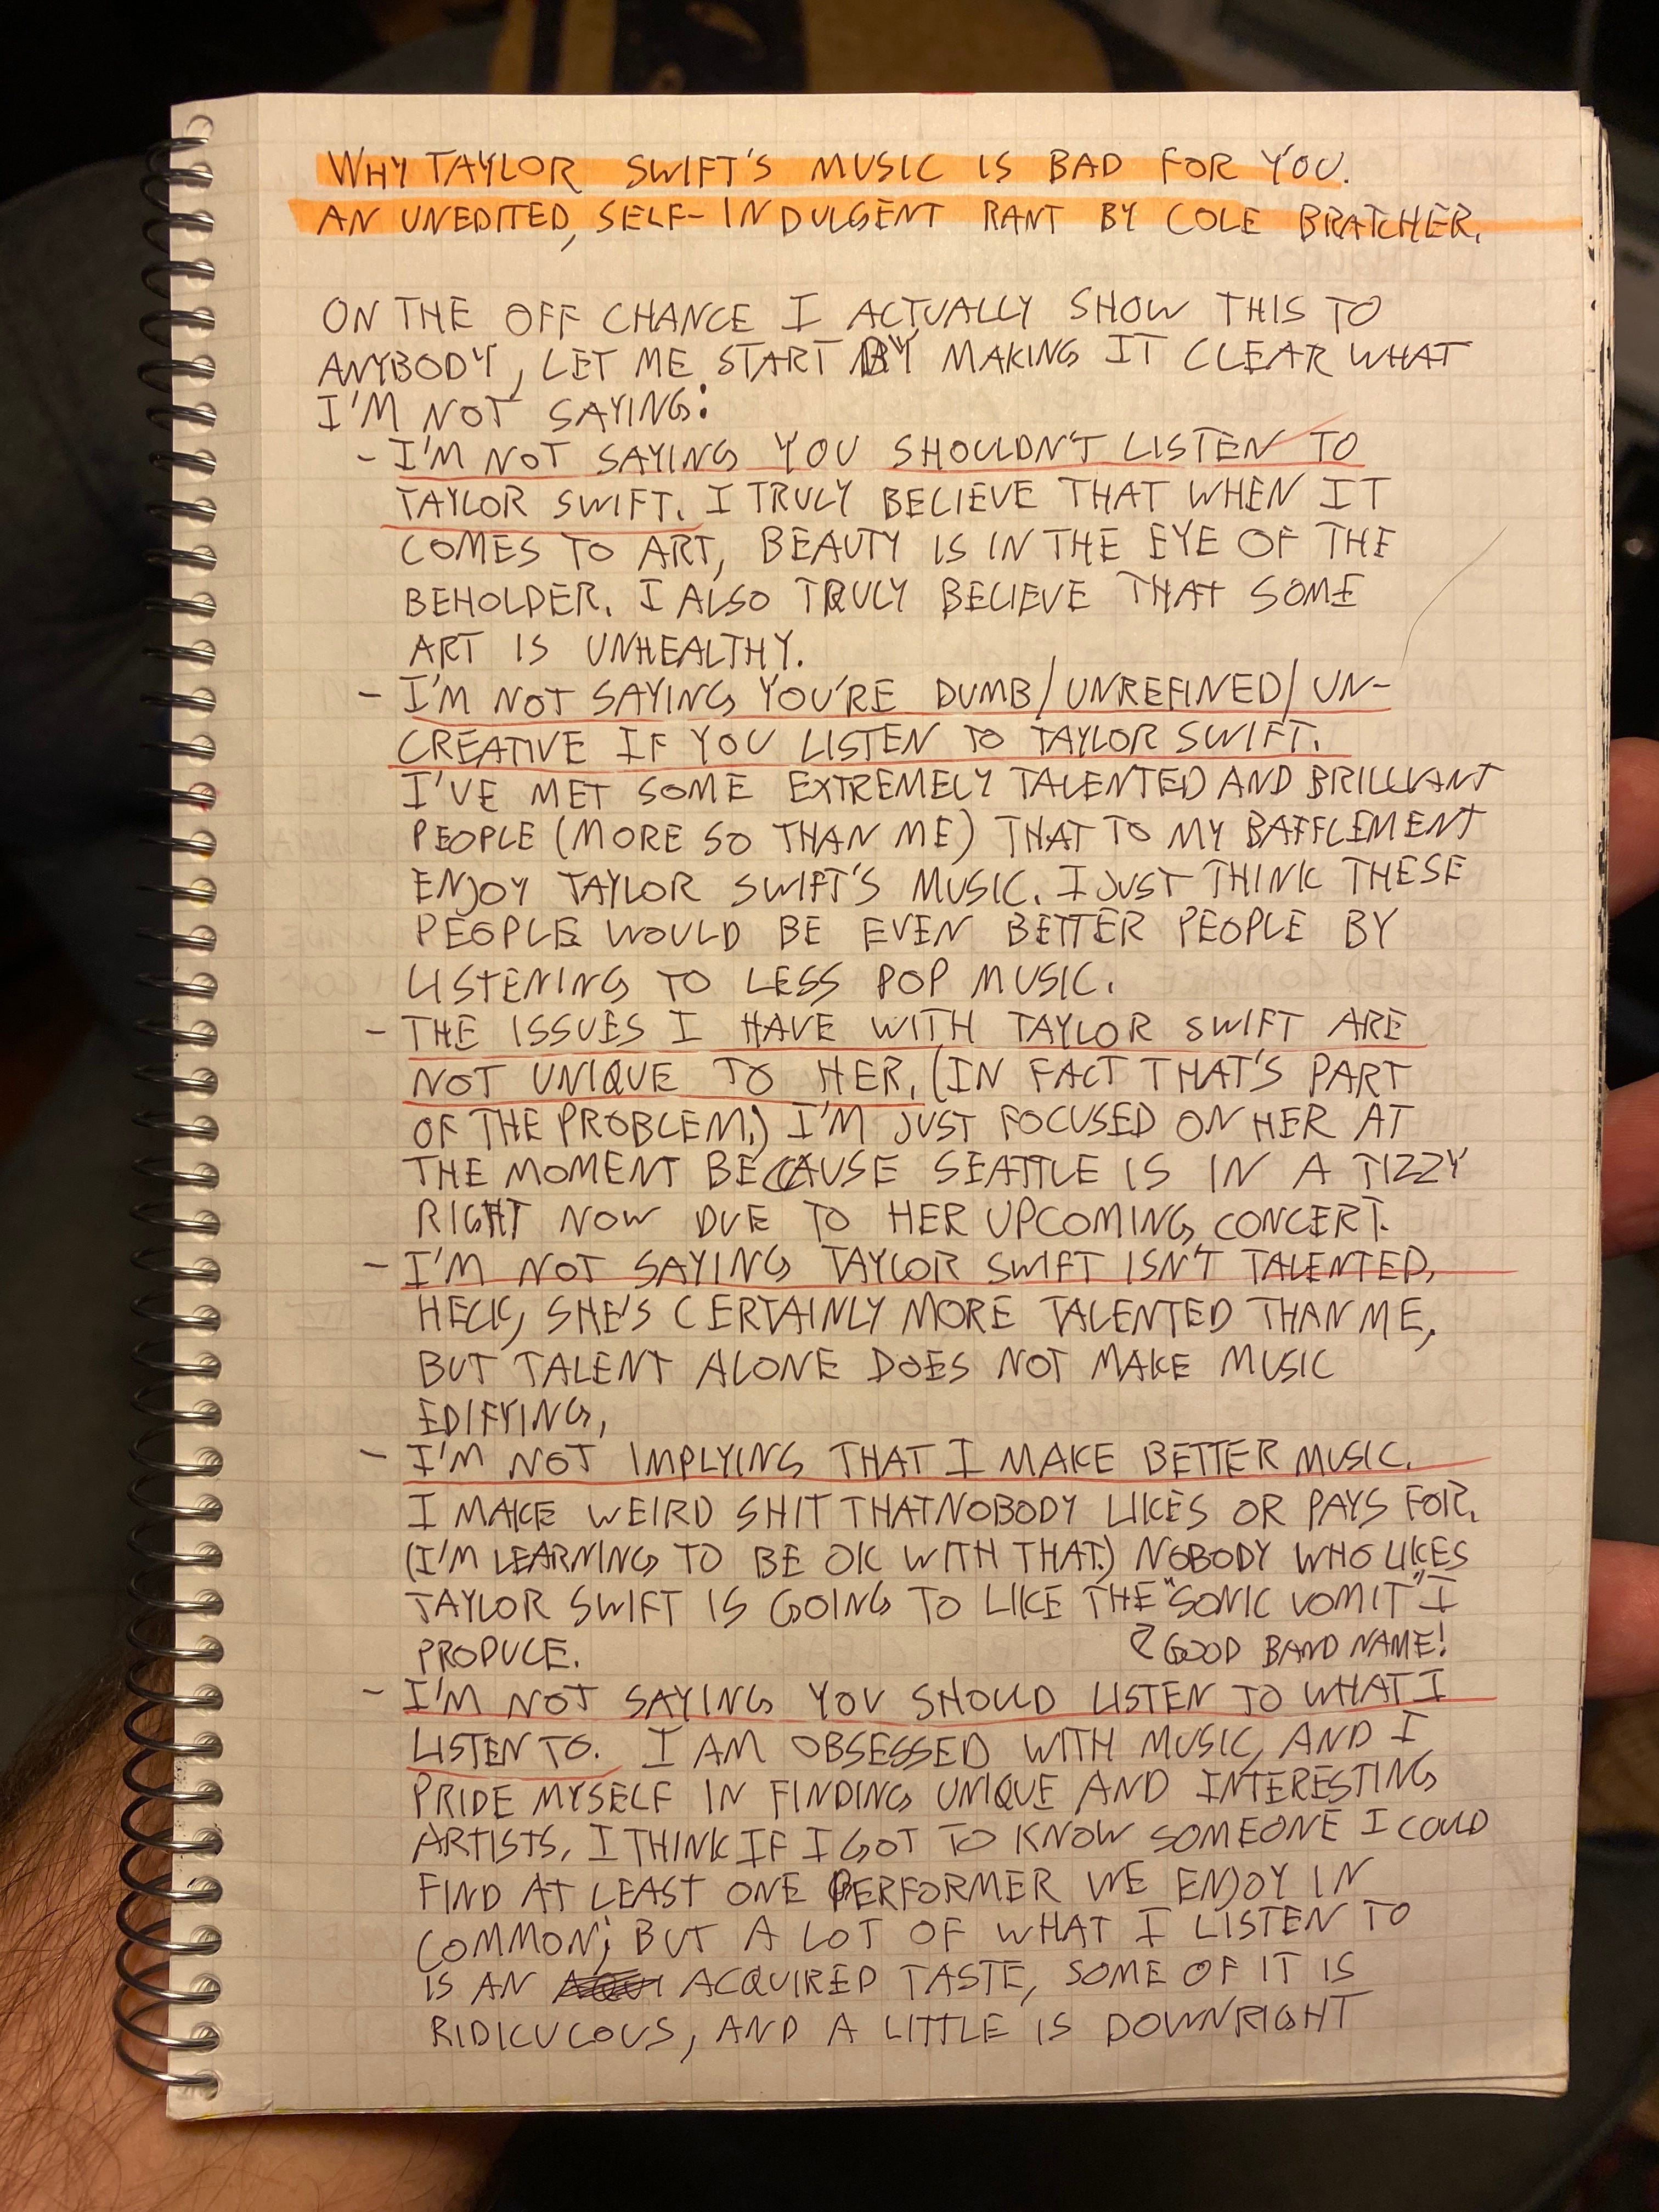 WHY TAYLOR SWIFT'S MUSIC IS BAD FOR YOU.
AN UNEDITED, SELF-INDULGENT RANT BY COLE BRATCHER.
ON THE OFF CHANCE I ACTUALLY SHOW THIS TO
ANYBODY, LET ME START BY MAKING IT CLEAR WHAT
I'M NOT SAYING:
- I'M NOT SAYING YOU SHOULDN'T LISTEN TO
TAYLOR SWIFT. I TRULY BELIEVE THAT WHEN IT
COMES TO ART, BEAUTY IS IN THE EYE OF THE
BEHOLDER. I ALSO TRULY BELIEVE THAT SOME
ART IS UNHEALTHY.
- I'M NOT SAYING YOU'RE DUMB/UNREFINED/UN-
CREATIVE IF YOU LISTEN TO TAYLOR SWIFT.
I'VE MET SOME EXTREMELY TALENTED AND BRILLIANT
PEOPLE (MORE SO THAN ME) THAT TO MY BAFFLEMENT
ENJOY TAYLOR SWIFT'S MUSIC. I JUST THINK THESE
PEOPLE WOULD BE EVEN BETTER PEOPLE BY
LISTENING TO LESS POP MUSIC.
- THE ISSUES I HAVE WITH TAYLOR SWIFT ARE
NOT UNIQUE TO HER. (IN FACT THAT'S PART
OF THE PROBLEM.) I'M JUST FOCUSED ON HER AT
THE MOMENT BECAUSE SEATTLE IS IN A TIZZY
RIGHT NOW DUE TO HER UPCOMING CONCERT.
- I'M NOT SAYING TAYLOR SWIFT ISN'T TALENTED.
HECK, SHE'S CERTAINLY MORE TALENTED THAN ME,
BUT TALENT ALONE DOES NOT MAKE MUSIC
EDIFYING.
- I'M NOT IMPLYING THAT I MAKE BETTER MUSIC.
I MAKE WEIRD SHIT THAT NOBODY LIKES OR PAYS FOR.
(I'M LEARNING TO BE OK WITH THAT.) NOBODY WHO LIKES
TAYLOR SWIFT IS GOING TO LIKE THE "SONIC VOMIT" I
PRODUCE. GOOD BAND NAME!
- I'M NOT SAYING YOU SHOULD LISTEN TO WHAT I
LISTEN TO. I AM OBSESSED WITH MUSIC, AND I
PRIDE MYSELF IN FINDING UNIQUE AND INTERESTING
ARTISTS. I THINK IF I GOT TO KNOW SOMEONE I COULD
FIND AT LEAST ONE PERFORMER WE ENJOY IN
COMMON; BUT A LOT OF WHAT I LISTEN TO
IS AN ACQUIRED TASTE, SOME OF IT IS
RIDICULOUS, AND A LITTLE IS DOWNRIGHT